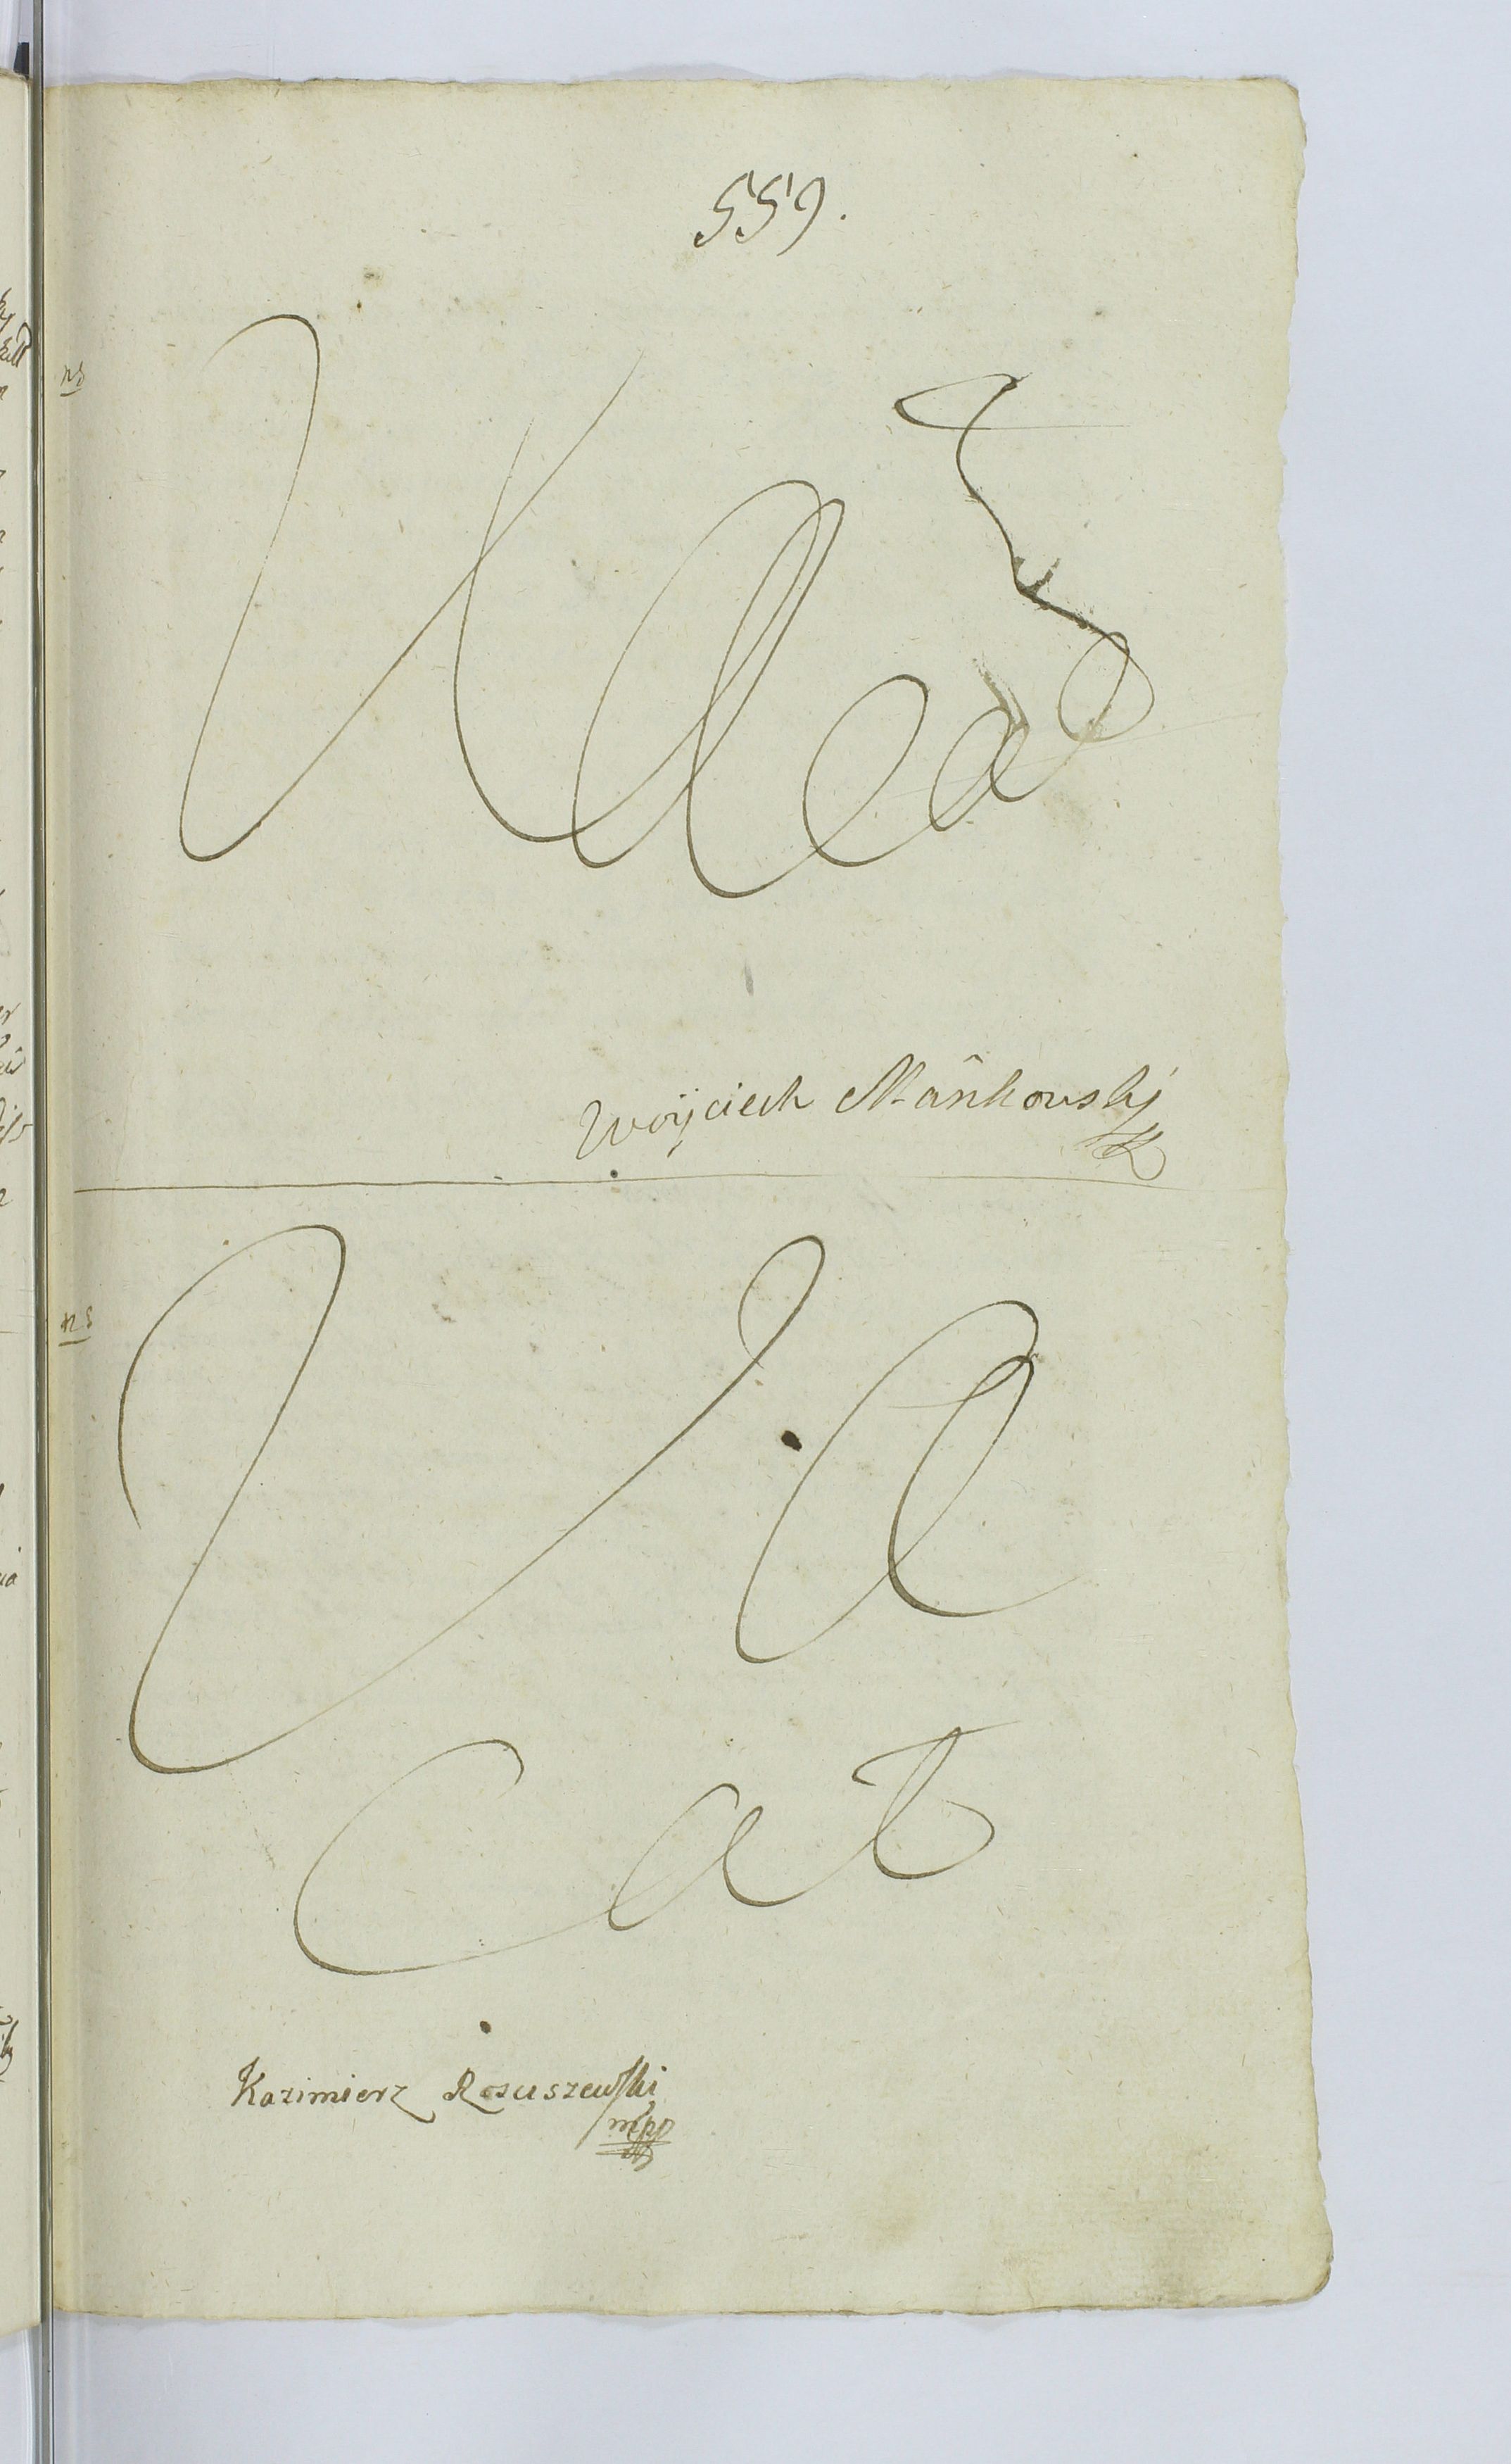 559.
ns
Vacat
Woÿciech Mańkowskj
ns
Va
cat
Kazimierz Rosciszewski
mpo